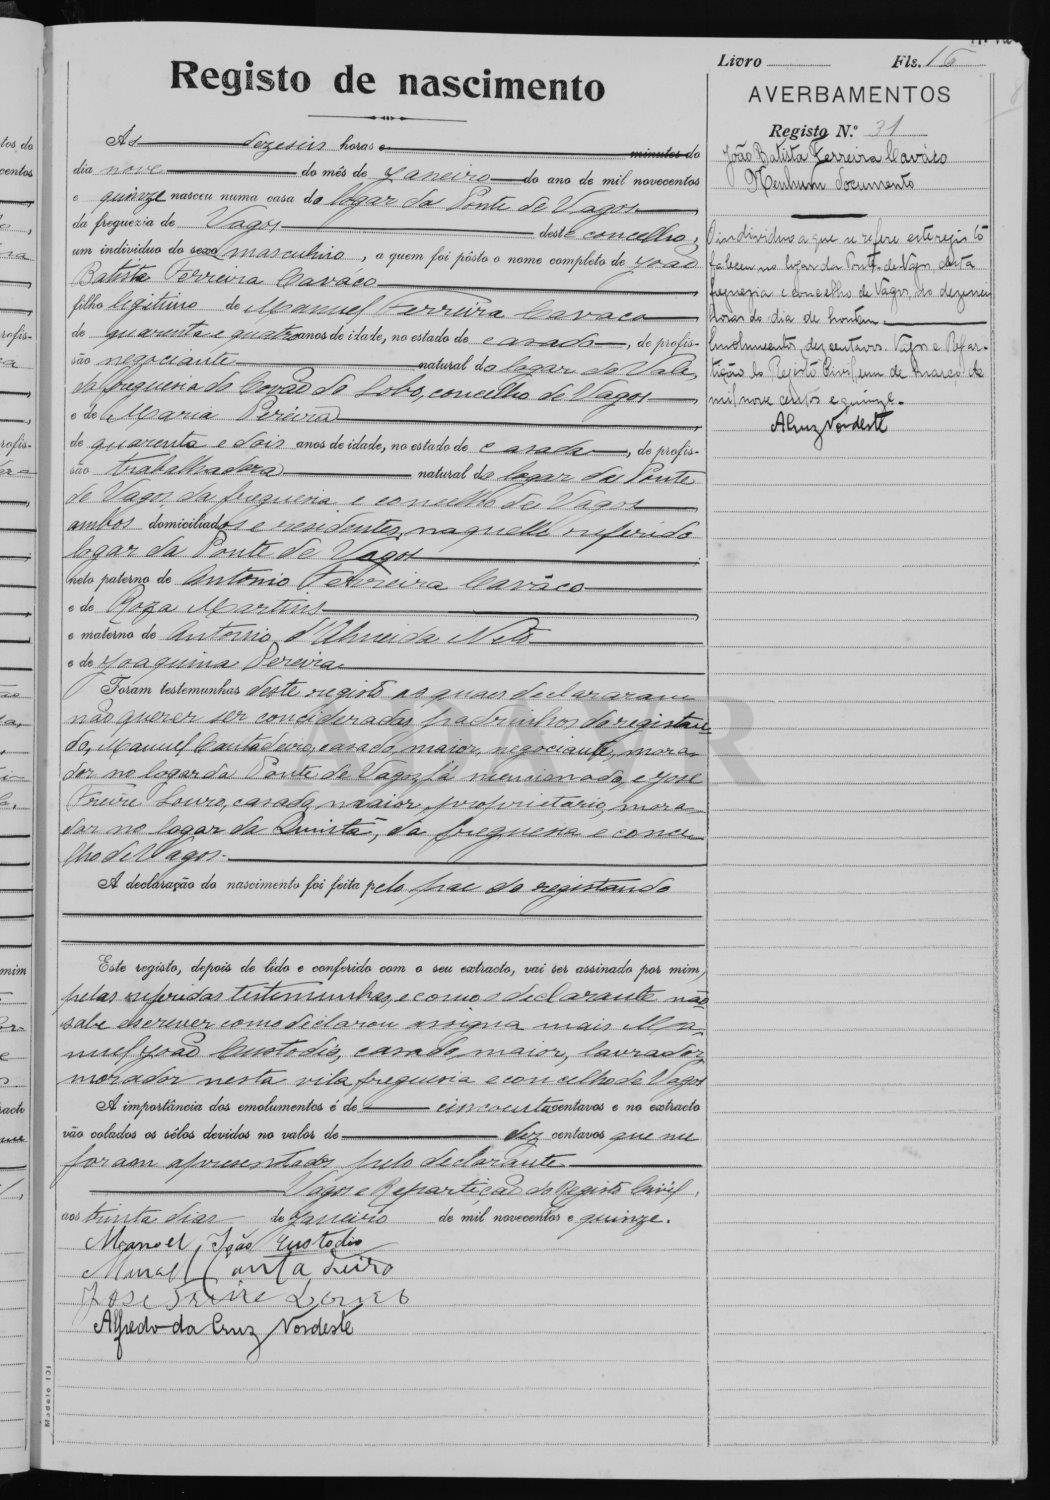 Livro Fls. 16
Registo de nascimento
AVERBAMENTOS
Registo N.º 31
João Batista Ferreira Caváco
Nenhum documento
Ás dezeseis horas e minutos do
dia nove do mês de Janeiro do ano de mil novecentos
e quinze nasceu numa casa do logar da Ponte de Vagos
da freguezia de Vagos deste concelho,
um individuo do sexo masculino, a quem foi pôsto o nome completo de João
Batista Ferreira Caváco
filho legitimo de Manuel Ferreira Cavaco
de quarenta e quatro anos de idade, no estado de casado, de profis-
são negociante natural do logar da Vala,
da freguesia da Covão do Lobo, concelho de Vagos
e de Maria Pereira
de quarenta e dois anos de idade, no estado de casada, de profis-
são trabalhadora natural do logar da Ponte
de Vagos, da freguesia e concelho de Vagos
ambos domiciliados e residentes, naquelle referido
logar da Ponte de Vagos
neto paterno de António Ferreira Caváco
e de Roza Martins
e materno de António d'Almeida Neto
e de Joaquina Pereira
Foram testemunhas deste registo as quaes declararam
não querer ser consideradas padrinhos do registan
do, Manuel Cantadeiro, casado, maior, negociante, mora
dor no logar da Ponte de Vagos, já mencionado, e José
Freire Louro, casado, maior, proprietario, mora
dor no logar da Quintã, da freguesia e conce
lho de Vagos.
A declaração do nascimento foi feita pelo pae do registando
Este registo, depois de lido e conferido com o seu extracto, vai ser assinado por mim,
pelas referidas testemunhas, e como o declarante não
sabe escrever como declarou assigna mais Ma
nuel João Custodio, casado, maior, lavrador,
morador nesta vila, freguesia e concelho de Vagos
A importância dos emolumentos é de cincoenta centavos e no extracto
vão colados os sêlos devidos no valor de dez centavos que me
foram apresentados pelo declarante
Vagos e Repartição do Registo Civil,
aos trinta dias de Janeiro de mil novecentos e quinze.
Manoel João Custodio
Manuel Cantadeiro
José Freire Louro
Alfredo da Cruz Nordeste
O individuo a que se refere este registo
faleceu no logar da Ponte de Vagos, desta
freguezia e concelho de Vagos, ás dezenove
horas do dia de hontem.
Emolumentos, dez centavos. Vagos e Repar-
tição do Registo Civil, em de março de
mil nove centos e quinze.
ACruz Nordeste
Modelo 131
ADAVR